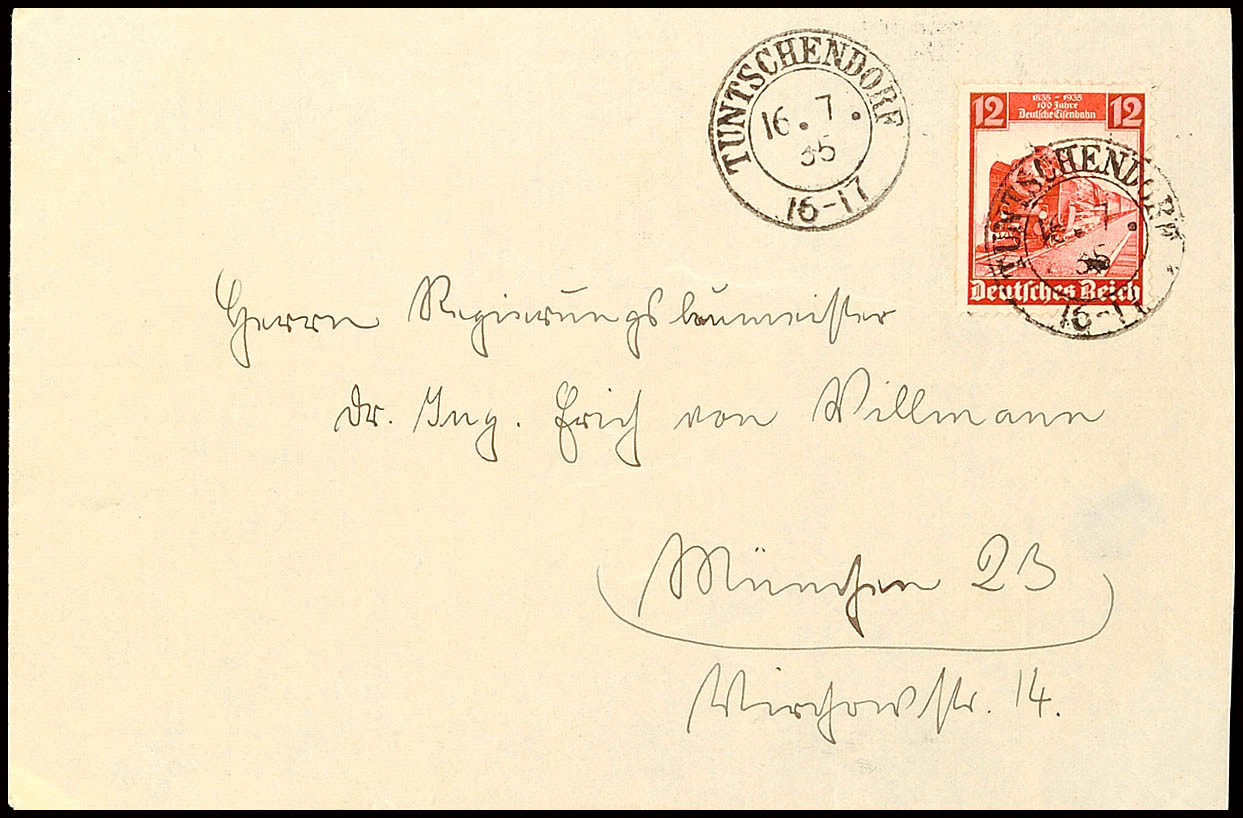 TUNTSCHENDORF
16.7.
35
16-17
12 1835-1935 12
100 Jahre
Deutsche Eisenbahn
TUNTSCHENDORF
16.7.
35
16-17
Deutsches Reich
Herrn Regierungsbaumeister
Dr. Ing. Erich von Willmann
München 23
Virchowstr. 14.